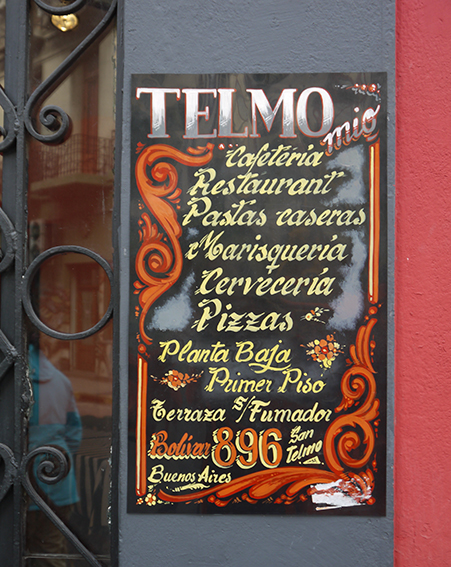 TELMO mio
Cafetería
Restaurant
Pastas caseras
Marisquería
Cervecería
Pizzas
Planta Baja
Primer Piso
Terraza s/Fumador
Bolívar 896 San Telmo
Buenos Aires